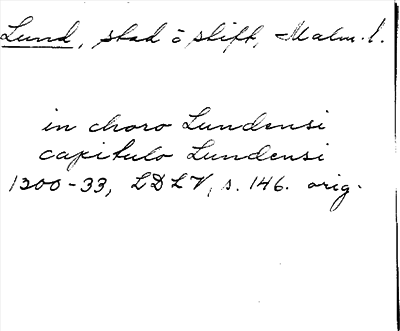 Lund, stad o stift, Malm. l.
in choro Lundensi
capitulo Lundensi
1200-33, LDLV, s. 146. orig.